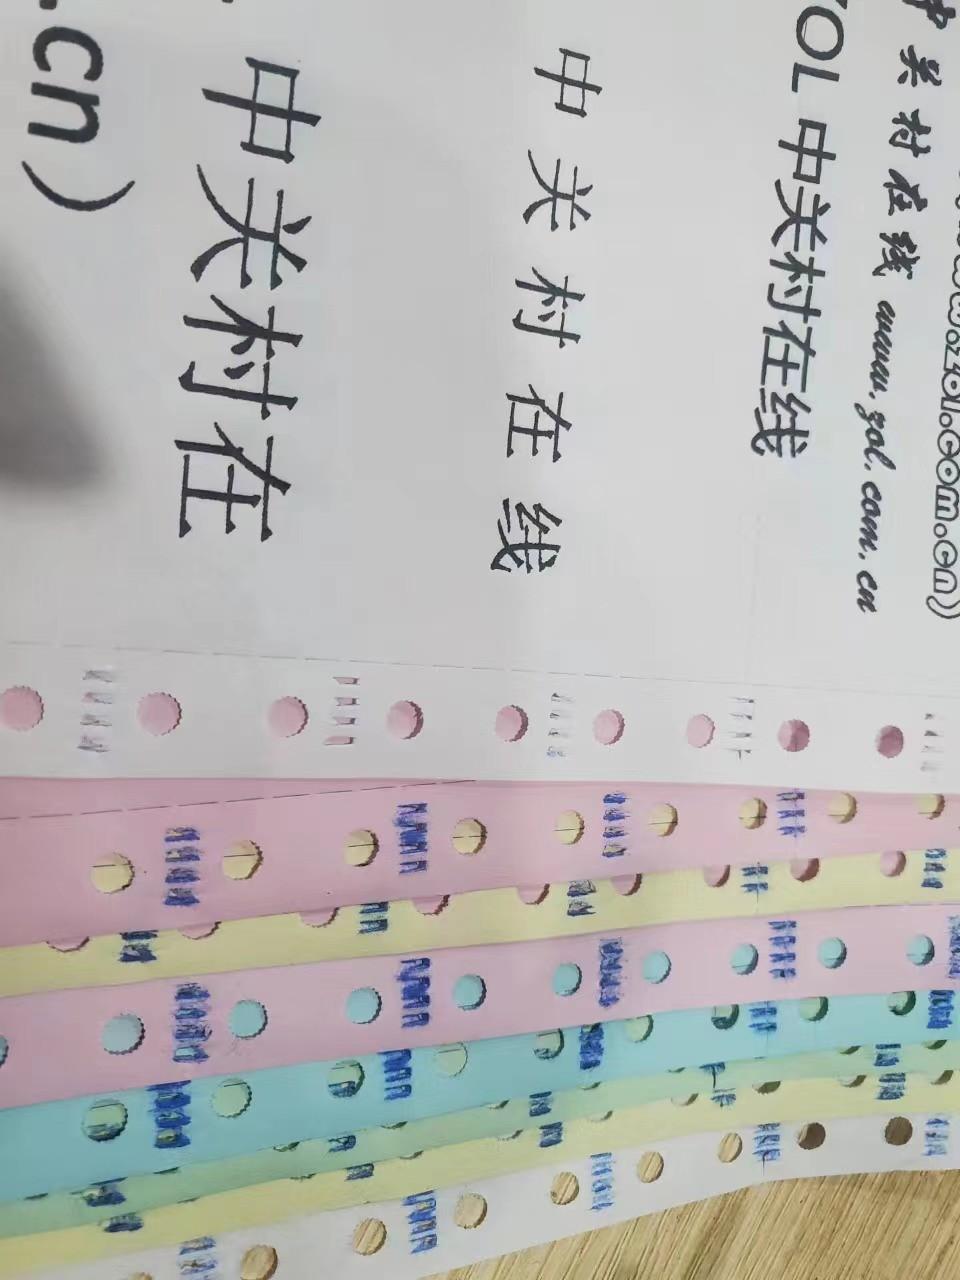 w.zol.com.cn)
中关村在线 www.zol.com.cn
OL 中关村在线
中关村在线
中关村在
.cn)